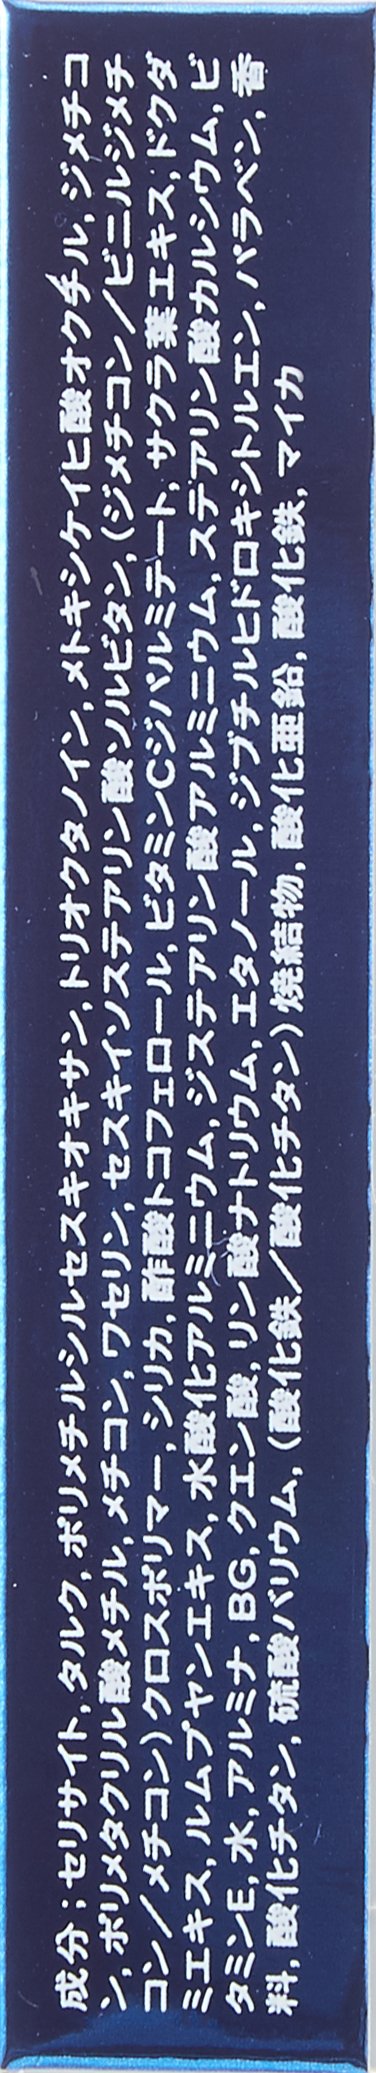 成分:セリサイト, タルク, ポリメチルシルセスキオキサン, トリオクタノイン, メトキシケイヒ酸オクチル, ジメチコ
ン, ポリメタクリル酸メチル, メチコン, ワセリン, セスキイソステアリン酸ソルビタン, (ジメチコン/ビニルジメチ
コン/メチコン)クロスポリマー, シリカ, 酢酸トコフェロール, ビタミンCジパルミテート, サクラ葉エキス, ドクダ
ミエキス, ルムプヤンエキス, 水酸化アルミニウム, ジステアリン酸アルミニウム, ステアリン酸カルシウム, ビ
タミンE, 水, アルミナ, BG, クエン酸, リン酸ナトリウム, エタノール, ジブチルヒドロキシトルエン, パラベン, 香
料, 酸化チタン, 硫酸バリウム, (酸化鉄/酸化チタン)焼結物, 酸化亜鉛, 酸化鉄, マイカ